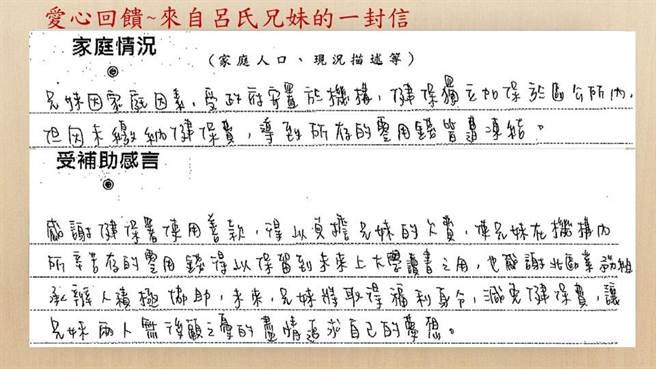 愛心回饋~來自呂氏兄妹的一封信
家庭情況
(家庭人口、現況描述等)
兄妹因家庭因素,受政府安置於機構,健保獨立加保於區公所內,
但因未繳納健保費,導致所存的零用錢皆遭凍結。
受補助感言
感謝健保署使用善款,得以負擔兄妹的欠費,使兄妹在機構內
所辛苦存的零用錢得以保留到未來上大學讀書之用,也感謝北區業務組
承辦人積極協助,未來,兄妹將取得福利身分,減免健保費,讓
兄妹兩人無後顧之憂的盡情追求自己的夢想。